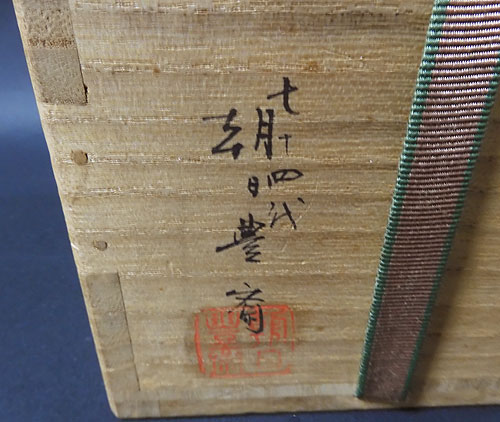 七十四代
朝日豊斎